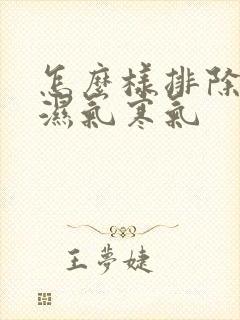 怎麼樣排除
濕氣寒氣
王夢婕